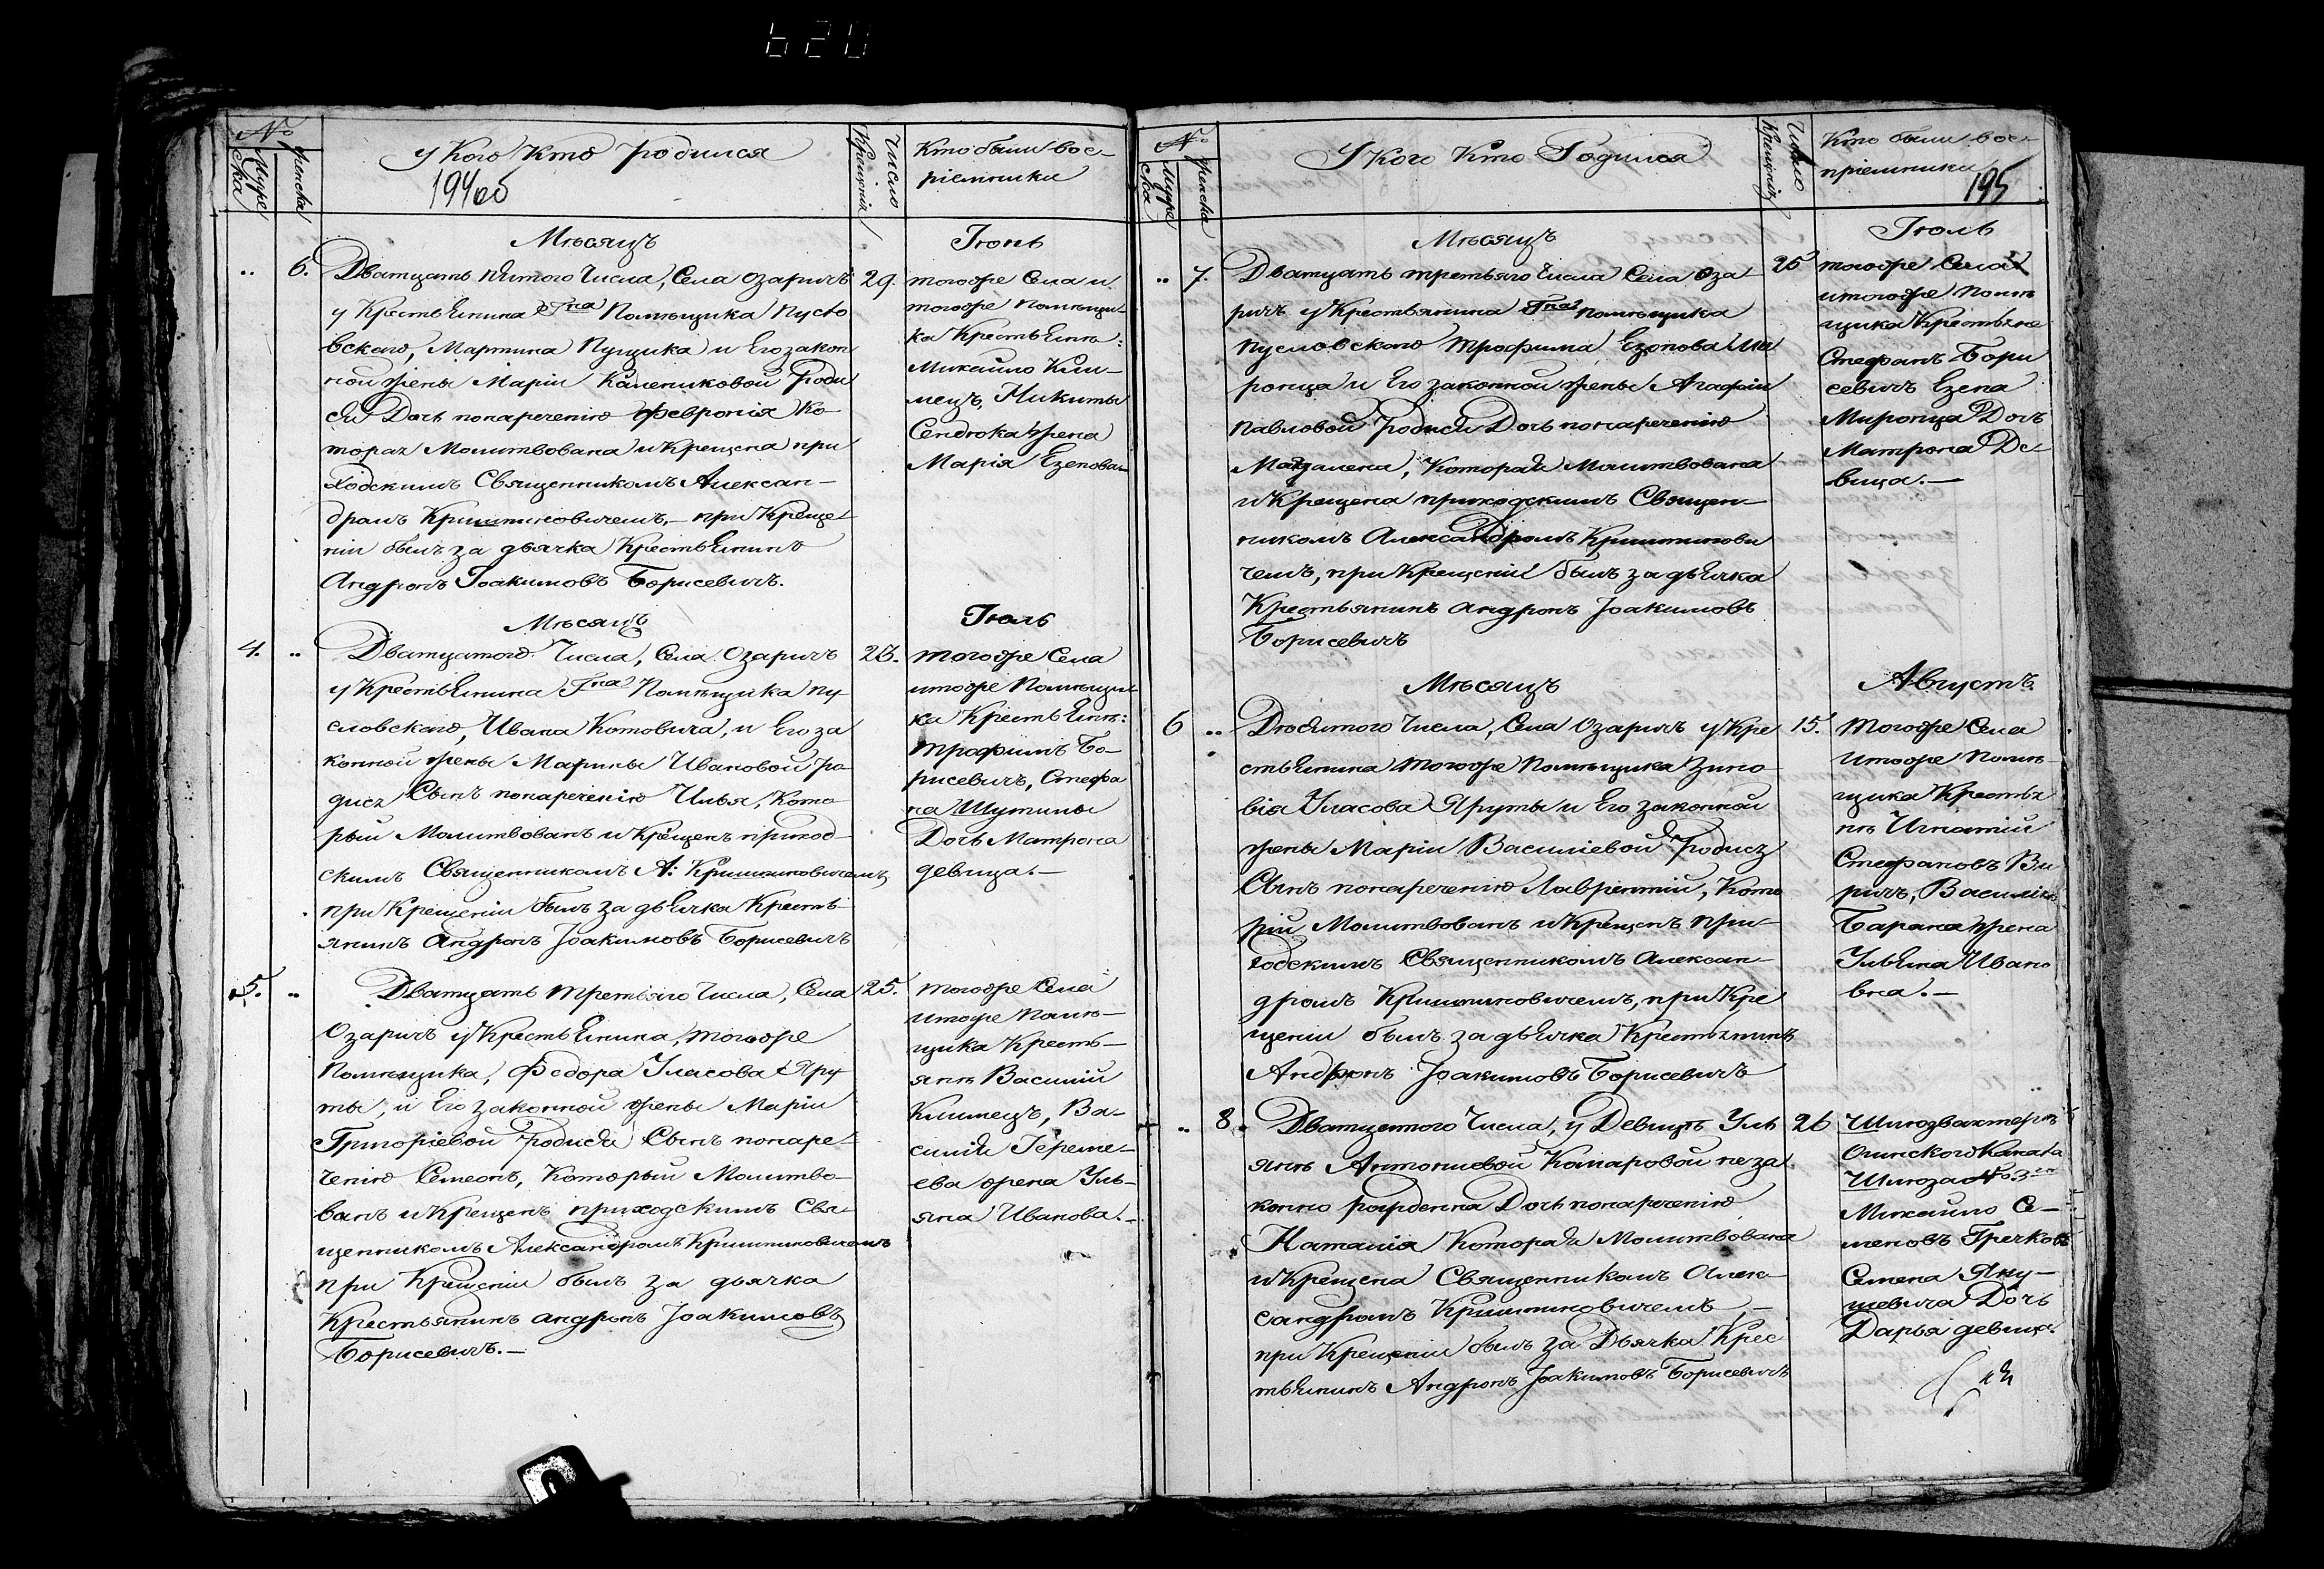 620
№
Муже
ска
женска
У Кого Кто родился
194об
Число
Крещенія
Кто были вос-
пріемники
Мѣсяцъ
Іюнь
6.
Дватцать пятого Числа, Села Озаричъ
у Крестьянина Гна Помѣщика Пусло
вскаго, Мартина Пущика и Его закон
ной жены Маріи Калениковой Роди
ся Дочь понареченію Февронія Ко-
торая Молитвована и Крещена при
ходскимъ Священникомъ Алексан-
дромъ Криштиковичемъ,- при Креще
ніи былъ за дьячка Крестьянинъ
Андронъ Іоакимовъ Борисевичъ.
29.
тогоже Села и
тогоже Помѣщи-
ка Крестьяня:
Михайло Кли-
мецъ, Никиты
Сендюка жена
Марія Езепова
Мѣсяцъ
Іюль
4.
Дватцатого Числа, Села Озаричъ
у Крестьянина Гна Помѣщика Пу-
словскаго, Ивана Котовича, и Его за
конной жены Марины Ивановой ро-
дися Сынъ понареченію Илья, Кото-
рый Молитвованъ и Крещенъ приход-
скимъ Священникомъ А: Криштиковичемъ
при Крещеніи былъ за дьячка Кресть-
янинъ Андронъ Іоакимовъ Борисевичъ
23.
тогоже Села
итогоже Помѣщи-
ка Крестьяня:
Трофимъ Бо-
рисевичъ, Стефа
на Шутины
Дочь Матрона
девица.-
5.
Дватцать третьяго Числа, Села
Озаричъ у Крестьянина, тогоже
Помѣщика, Федора Уласова Яру
ты, и Его законной жены Маріи
Григоріевой родися Сынъ понаре-
ченію Семеонъ, Который Молитво-
ванъ и Крещенъ приходскимъ Свя-
щенникомъ Александромъ Криштиковичемъ
при Крещеніи былъ за дьячка
Крестьянинъ Андронъ Іоакимовъ
Борисевичъ.-
25.
тогоже Села
итогоже Помѣ-
щика Кресть-
яня Василій
Климецъ, Ва-
силія Іереме-
ева жена Уль-
яна Иванова.-
№
Муже
ска
женска
У Кого Кто Родился
Число
Крещенія
Кто были вос-
пріемники
195
Мѣсяцъ
Іюль
7.
Дватцать третьяго Числа Села Оза
ричъ у Крестьянина Гна Помѣщика
Пусловского Трофима Езепова Ми
ронца и Его законной жены Агафіи
Павловой Родися Дочь понареченію
Магдалена, Которая Молитвована
и Крещена приходскимъ Священ-
никомъ Александромъ Криштикови
чемъ, при Крещеніи былъ за дьячка
Крестьянинъ Андронъ Іоакимовъ
Борисевичъ
25
тогоже Села
итогоже Помѣ
щика Крестьяне
Стефанъ Бори
севичъ Езепа
Миронца Дочь
Матрона Де-
вица.-
Мѣсяцъ
Августъ.
6
Дюсятого Числа, Села Озаричъ у Кре
стьянина тогоже Помѣщика Зино
вія Уласова Яруты и Его законной
жены Маріи Василіевой Родися
Сынъ понареченію Лаврентій, Кото
рій Молитвованъ и Крещенъ при-
ходскимъ Священникомъ Алексан-
дромъ Криштиковичемъ, при Кре
щеніи былъ за дьячка Крестьянинъ
Андронъ Іоакимовъ Борисевичъ
15.
тогоже Села
Итогоже Помѣ-
щика Крестья
нѣ Игнатій
Стефановъ Ви
ричъ, Василія
Барана жена
Ульяна Ивано
вна.-
8.
Дватцетого Числа, у Девицѣ Уль
янѣ Антониевой Комаровой неза
конно рожденна Дочь понареченію
Наталія Которая Молитвована
и Крещена Священникомъ Алек-
сандромъ Криштиковичемъ,-
при Крещеніи былъ за Дьячка Крес
тьянинъ Андронъ Іоакимовъ Борисевичъ
26
Шлюзвахтеръ
Огинского Канала
Шлюза №3го
Михайло Се-
меновъ Гречковъ
Семена Яку-
шевича Дочь
Дарья девица.